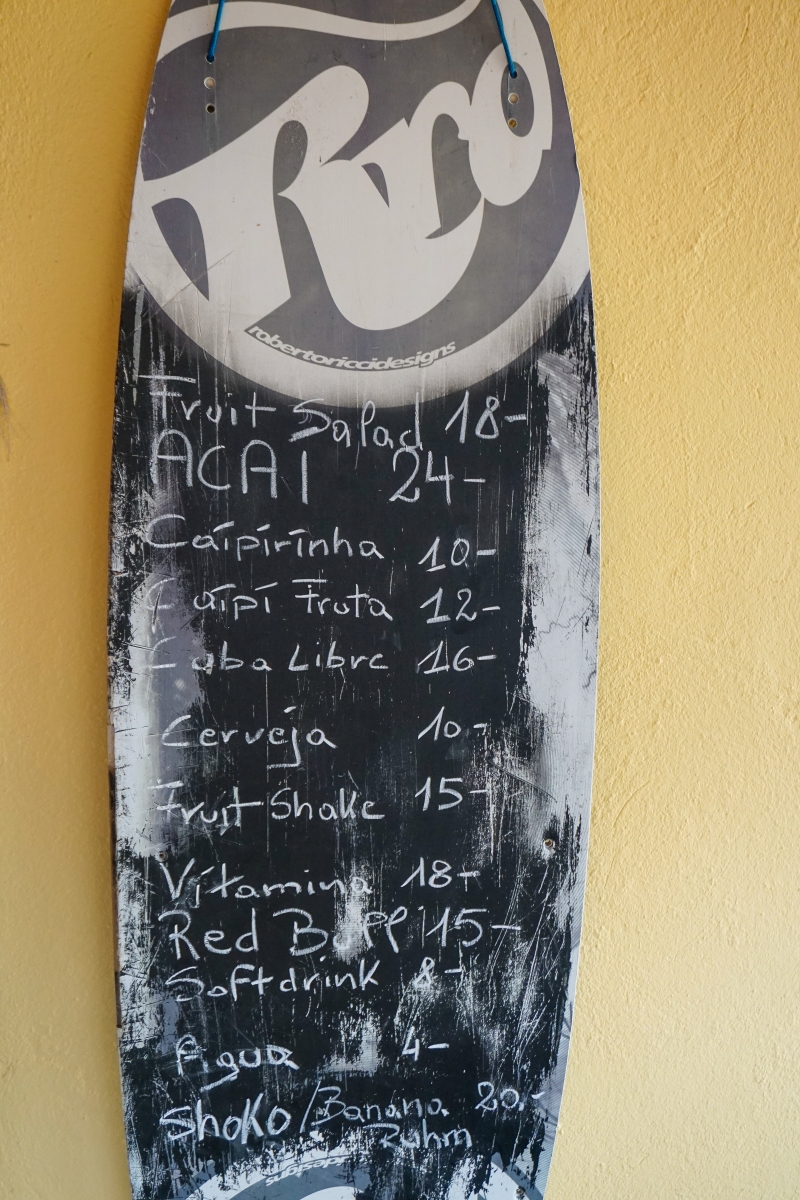 Rrd
robertoriccidesigns
Fruit Salad 18-
ACAI 24-
Caipirinha 10-
Caipi Fruta 12-
Kuba Libre 16-
Cerveja 10-
Fruit Shake 15-
Vitamina 18-
Red Bull 15-
Softdrink 8-
Agua 4-
Shoko/Banana 20.-
Ruhm
designs